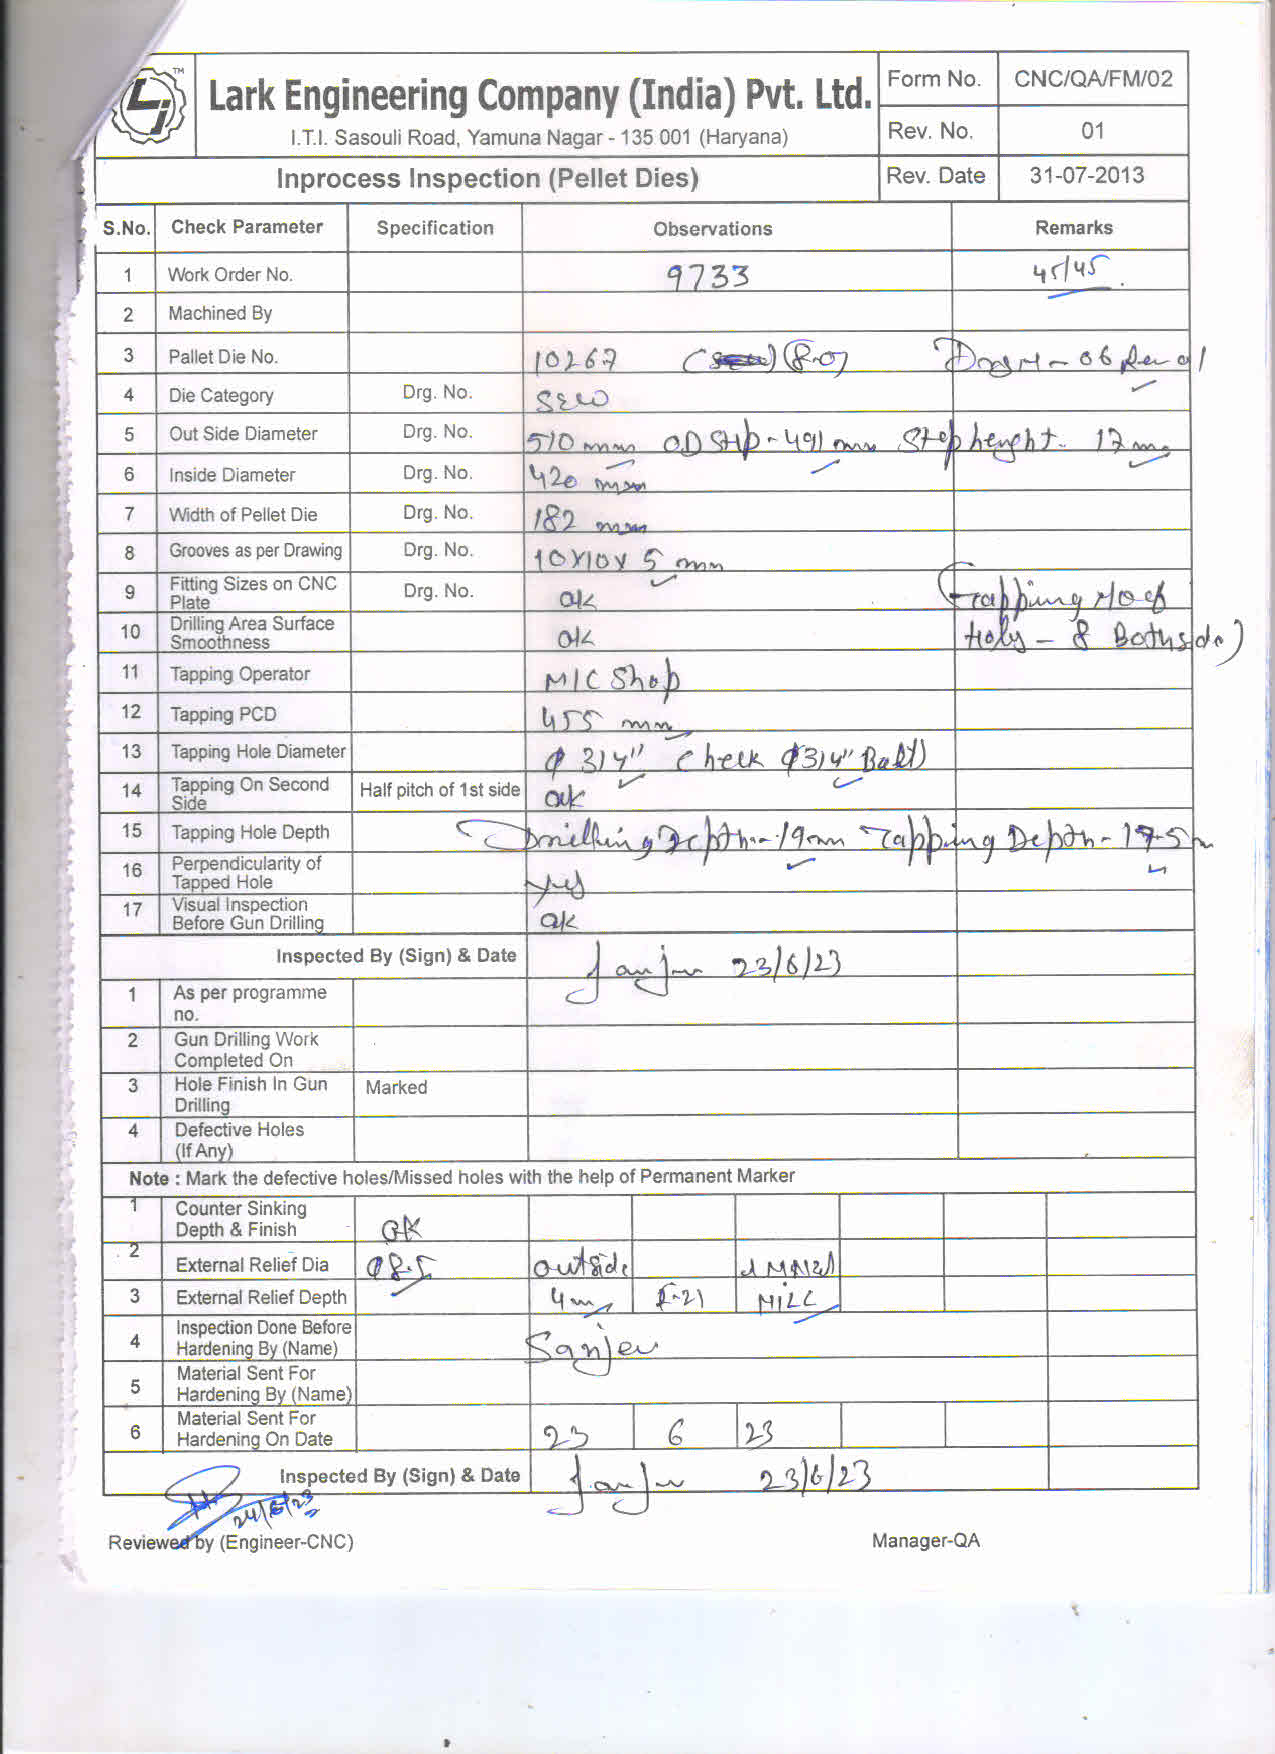 TM
Lark Engineering Company (India) Pvt. Ltd.
I.T.I. Sasouli Road, Yamuna Nagar - 135 001 (Haryana)
Form No. CNC/QA/FM/02
Rev. No. 01
Inprocess Inspection (Pellet Dies) Rev. Date 31-07-2013
S.No. Check Parameter Specification Observations Remarks
1 Work Order No. 9733 45/45
2 Machined By
3 Pallet Die No. 10267 (8.0) - 06 Rev 01
4 Die Category Drg. No.
5 Out Side Diameter Drg. No. 510 mm O.D Step - 491 mm Step height - 17 mm
6 Inside Diameter Drg. No. 420 mm
7 Width of Pellet Die Drg. No. 182 mm
8 Grooves as per Drawing Drg. No. 10X10X 5 mm
9 Fitting Sizes on CNC Plate Drg. No. ok Tapping No of
10 Drilling Area Surface Smoothness ok - 8 Bothside)
11 Tapping Operator M/C Shop
12 Tapping PCD 455 mm
13 Tapping Hole Diameter ϕ 3/4" (heck ϕ3/4" Bolt)
14 Tapping On Second Side Half pitch of 1st side ok
15 Tapping Hole Depth Drilling Depth - 19mm Tapping Depth - 17.5
16 Perpendicularity of Tapped Hole yes
17 Visual Inspection Before Gun Drilling ok
Inspected By (Sign) & Date 23/6/23
1 As per programme no.
2 Gun Drilling Work Completed On
3 Hole Finish In Gun Drilling Marked
4 Defective Holes (If Any)
Note : Mark the defective holes/Missed holes with the help of Permanent Marker
1 Counter Sinking Depth & Finish OK
2 External Relief Dia ϕ8.5 outside
3 External Relief Depth 4mm
4 Inspection Done Before Hardening By (Name) Sanjeev
5 Material Sent For Hardening By (Name)
6 Material Sent For Hardening On Date 23 6 23
Inspected By (Sign) & Date 23/6/23
24/6/23
Reviewed by (Engineer-CNC) Manager-QA